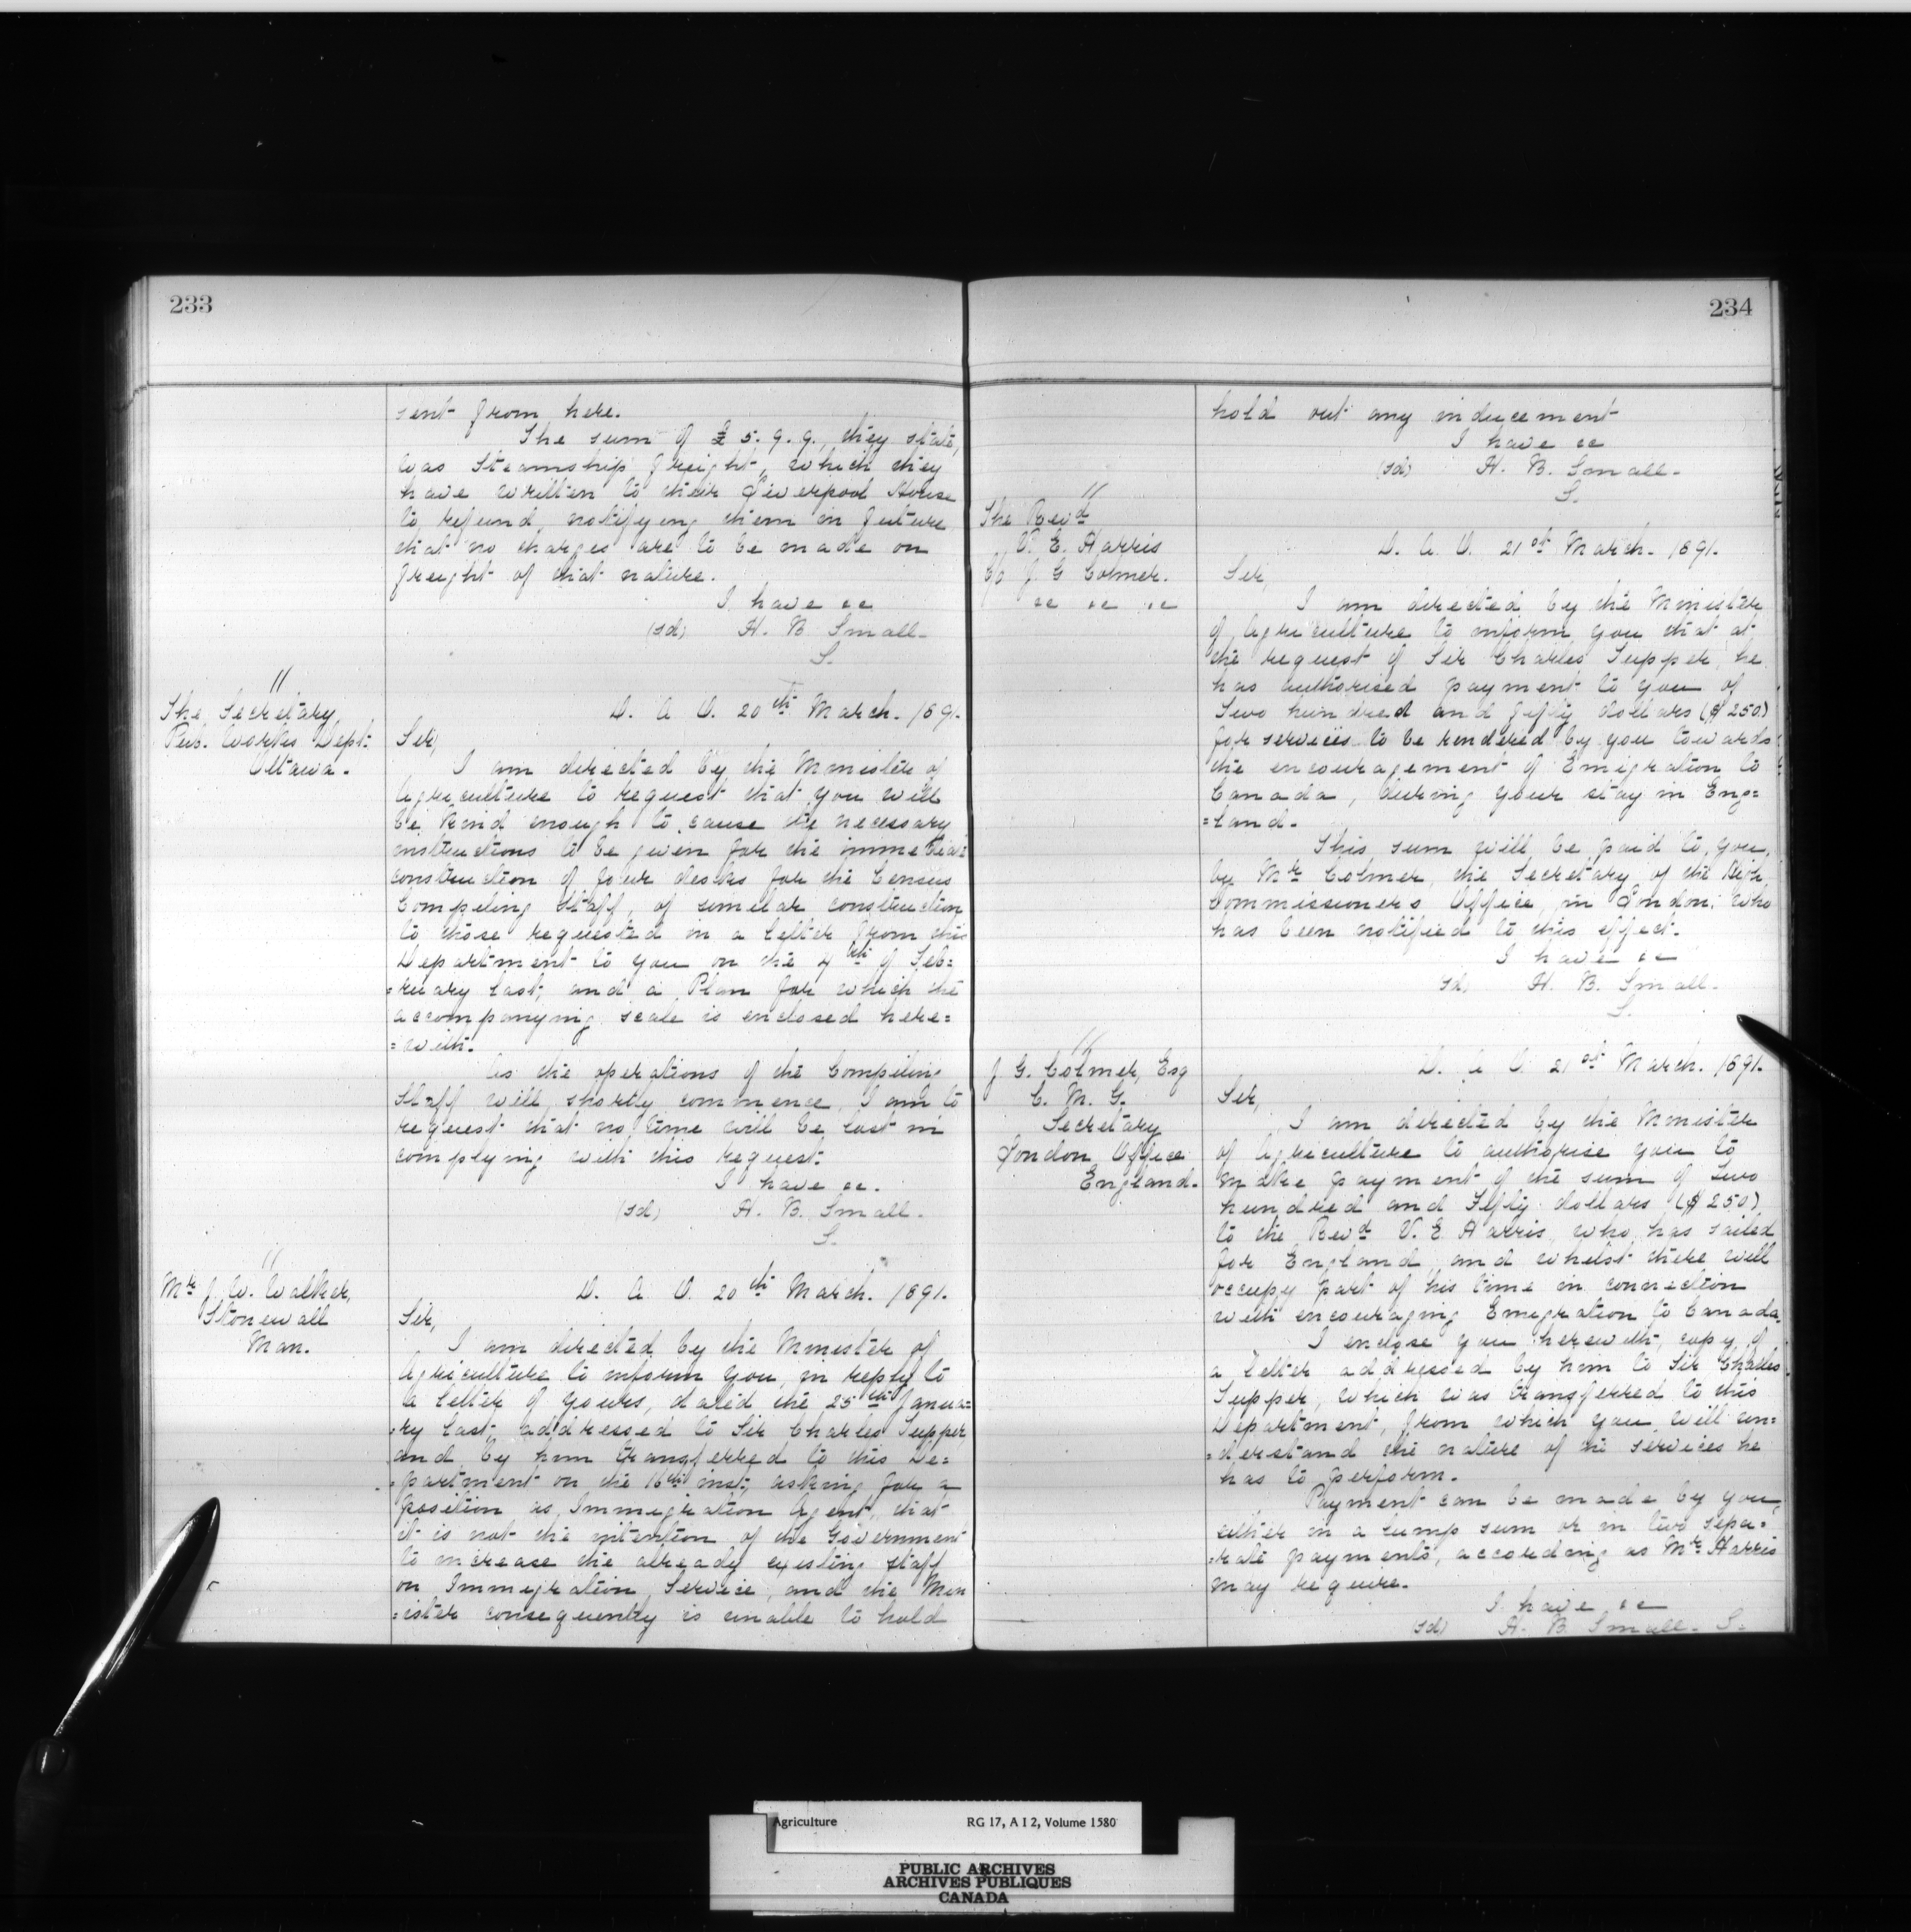 233
sent from here.
The sum of £5. 9. 9., they state,
was Steamship freight, which they
have written to their Liverpool House
to refund, notifying them in future
that no charges are to be made on
freight of that nature.
I have &c
(sd) H. B. Small.
S.
"
The Secretary
Pub. Works Dept.
Ottawa.
D. A. O. 20th March. 1891.
Sir,
I am directed by the Minister of
Agriculture to request that you will
be kind enough to cause the necessary
instructions to be given for the immediate
construction of four desks for the Census
Compiling Staff, of similar construction
to those requested in a letter from this
Department to you on the 4th of Feb=
=ruary last, and a Plan for which the
accompanying scale is enclosed here=
=with.
As the operations of the Compiling
Staff will shortly commence, I am to
request that no time will be lost in
complying with this request.
I have &c.
(sd) H. B. Small.
S.
"
Mr J. W. Walker,
Stonewall
Man.
D. A. O. 20th March. 1891.
Sir,
I am directed by the Minister of
Agriculture to inform you, in reply to
a letter of yours, dated the 25th Janua=
=ry last, addressed to Sir Charles Tupper,
and by him transferred to this De=
=partment on the 16th inst, asking for a
position as Immigration Agent, that
it is not the intention of the Government
to increase the already existing staff
on Immigration Service, and the Min
=ister consequently is unable to hold
234
hold out any inducement
I have &c
(sd) H. B. Small.
S.
"
The Revd
V. E. Harris
c/o J. G Colmer.
&c &c &c
D. A. O. 21st March. 1891.
Sir,
I am directed by the Minister
of Agriculture to inform you that at
the request of Sir Charles Tupper, he
has authorised payment to you of
Two hundred and fifty dollars ($250)
for services to be rendered by you towards
the encouragement of Emigration to
Canada, during your stay in Eng=
=land.
This sum will be paid to you,
by Mr Colmer, the Secretary of the High
Commissioners Office, in London, who
has been notified to this effect.
I have &c
sd, H. B. Small.
S.
"
J. G. Colmer, Esq
C. M. G.
Secretary
London Office
England.
D. A. O. 21st March. 1891.
Sir,
I am directed by the Minister
of Agriculture to authorise you to
make payment of the sum of Two
hundred and Fifty dollars ($250)
to the Revd V. E. Harris, who has sailed
for England, and whilst there will
occupy part of his time in connection
with encouraging Emigration to Canada.
I enclose you herewith, copy of
a letter addressed by him to Sir Charles
Tupper, which was transferred to this
Department, from which you will un=
=derstand the nature of the services he
has to perform.
Payment can be made by you,
either in a lump sum or in two sepa=
=rate payments, according as Mr Harris
may require.
I have &c
(sd) H. B. Small. S.
Agriculture RG 17, A I 2, Volume 1580
PUBLIC ARCHIVES
ARCHIVES PUBLIQUES
CANADA